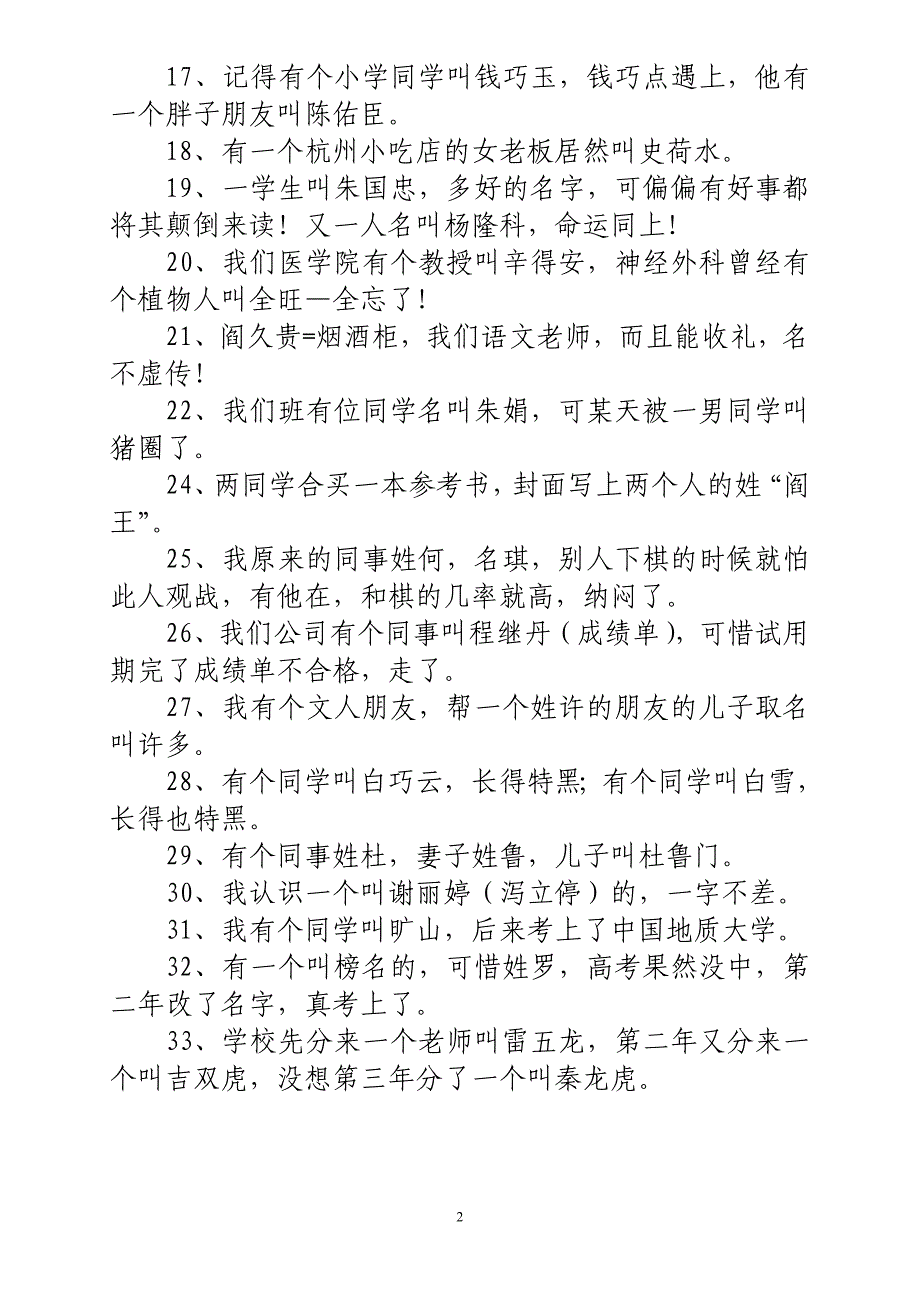 17、记得有个小学同学叫钱巧玉，钱巧点遇上，他有
一个胖子朋友叫陈佑臣。
18、有一个杭州小吃店的女老板居然叫史荷水。
19、一学生叫朱国忠，多好的名字，可偏偏有好事都
将其颠倒来读！又一人名叫杨隆科，命运同上！
20、我们医学院有个教授叫辛得安，神经外科曾经有
个植物人叫全旺—全忘了！
21、阎久贵=烟酒柜，我们语文老师，而且能收礼，名
不虚传！
22、我们班有位同学名叫朱娟，可某天被一男同学叫
猪圈了。
24、两同学合买一本参考书，封面写上两个人的姓“阎
王”。
25、我原来的同事姓何，名琪，别人下棋的时候就怕
此人观战，有他在，和棋的几率就高，纳闷了。
26、我们公司有个同事叫程继丹（成绩单），可惜试用
期完了成绩单不合格，走了。
27、我有个文人朋友，帮一个姓许的朋友的儿子取名
叫许多。
28、有个同学叫白巧云，长得特黑；有个同学叫白雪，
长得也特黑。
29、有个同事姓杜，妻子姓鲁，儿子叫杜鲁门。
30、我认识一个叫谢丽婷（泻立停）的，一字不差。
31、我有个同学叫旷山，后来考上了中国地质大学。
32、有一个叫榜名的，可惜姓罗，高考果然没中，第
二年改了名字，真考上了。
33、学校先分来一个老师叫雷五龙，第二年又分来一
个叫吉双虎，没想第三年分了一个叫秦龙虎。
2